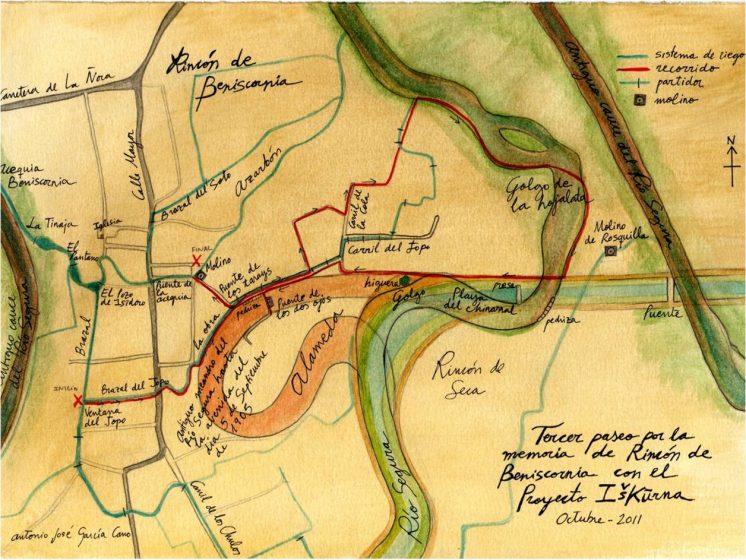 Rincón de
Beniscornia
sistema de riego
recorrido
partidor
molino
N
Carretera de La Ñora
Calle Mayor
acequia
Beniscornia
La Tinaja
Iglesia
El
Pantano
El Pozo
de Isidoro
Brazal del Soto
Azarbón
FINAL
Molino
Puente de
la acequia
la obra
Puente de
los
pedriza
Puente de
los dos ojos
Carril de
la Cola
Carril del Jopo
higuera
Golgo
Playa
del Chinarral
presa
pedriza
Puente
Golgo de
la hojalata
Molino
de Rosquilla
antiguo cauce del Río Segura
antiguo cauce
del Río Segura
Brazal
INICIO
Ventana
del Jopo
Brazal del Jopo
antiguo meandro del
Río Segura hasta
la avenida del
día 5 de Septiembre
de 1905
Alameda
Río Segura
Rincón de
Seca
Carril de los Chulos
antonio José García Cano
Tercer paseo por la
memoria de Rincón de
Beniscornia con el
Proyecto IšKurna
Octubre - 2011